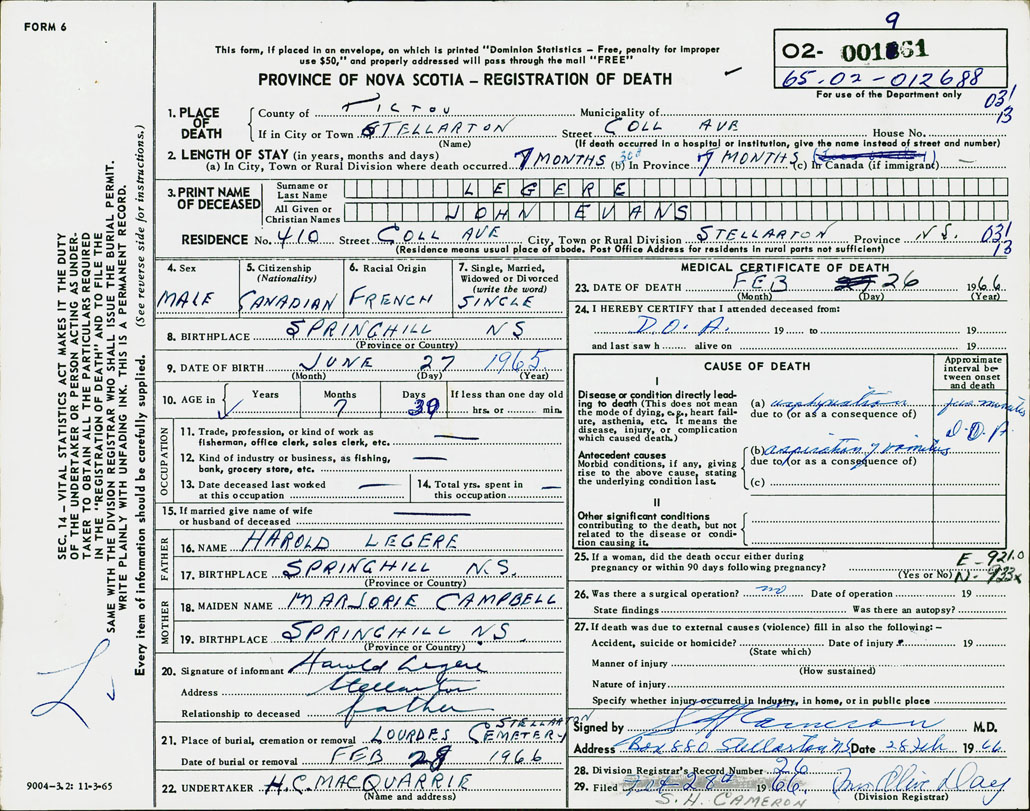 FORM 6
9
This form, if placed in an envelope, on which is printed "Dominion Statistics – Free, penalty for improper
use $50," and properly addressed will pass through the mail "FREE"
PROVINCE OF NOVA SCOTIA – REGISTRATION OF DEATH
02- 001861
65-02-012688
For use of the Department only
031
13
1. PLACE OF DEATH County of PICTOU Municipality of
If in City or Town STELLARTON Street COLL AVE House No.
(Name) (If death occurred in a hospital or institution, give the name instead of street and number)
2. LENGTH OF STAY (in years, months and days)
(a) In City, Town or Rural Division where death occurred 7 MONTHS 30d (b) In Province 7 MONTHS (c) In Canada (if immigrant)
3. PRINT NAME OF DECEASED
Surname or Last Name LEGERE
All Given or Christian Names JOHN EVANS
RESIDENCE No. 410 Street COLL AVE City, Town or Rural Division STELLARTON Province N.S. 031
13
(Residence means usual place of abode. Post Office Address for residents in rural parts not sufficient)
4. Sex MALE
5. Citizenship (Nationality) CANADIAN
6. Racial Origin FRENCH
7. Single, Married, Widowed or Divorced (write the word) SINGLE
8. BIRTHPLACE SPRINGHILL NS
(Province or Country)
9. DATE OF BIRTH JUNE 27 1965
(Month) (Day) (Year)
10. AGE in Years Months 7 Days 30 If less than one day old hrs. or min.
OCCUPATION
11. Trade, profession or kind of work as
fisherman, office clerk, sales clerk, etc.
12. Kind of industry or business, as fishing,
bank, grocery store, etc.
13. Date deceased last worked
at this occupation
14. Total yrs. spent in
this occupation
15. If married give name of wife
or husband of deceased
FATHER
16. NAME HAROLD LEGERE
17. BIRTHPLACE SPRINGHILL N.S.
(Province or Country)
MOTHER
18. MAIDEN NAME MARJORIE CAMPBELL
19. BIRTHPLACE SPRINGHILL NS.
(Province or Country)
20. Signature of informant Harold Legere
Address Stellarton
Relationship to deceased father
21. Place of burial, cremation or removal LOURDES CEMETERY STELLARTON
Date of burial or removal FEB 28 1966
22. UNDERTAKER H.C. MACQUARRIE
(Name and address)
MEDICAL CERTIFICATE OF DEATH
23. DATE OF DEATH FEB 26 1966
(Month) (Day) (Year)
24. I HEREBY CERTIFY that I attended deceased from:
D.O.A. 19 to 19
and last saw h alive on 19
CAUSE OF DEATH
Approximate interval between onset and death
I
Disease or condition directly leading to death (This does not mean the mode of dying, e.g., heart failure, asthenia, etc. It means the disease, injury, or complication which caused death.)
(a) asphyxiation few minutes
due to (or as a consequence of)
D.O.A
Antecedent causes
Morbid conditions, if any, giving rise to the above cause, stating the underlying condition last.
(b) aspiration of vomitus
due to (or as a consequence of)
(c)
II
Other significant conditions
contributing to the death, but not related to the disease or condition causing it.
25. If a woman, did the death occur either during
pregnancy or within 90 days following pregnancy?
(Yes or No)
E-921.0
N-933x
26. Was there a surgical operation? no Date of operation 19
State findings Was there an autopsy?
27. If death was due to external causes (violence) fill in also the following: –
Accident, suicide or homicide? Date of injury 19
(State which)
Manner of injury
(How sustained)
Nature of injury
Specify whether injury occurred in industry, in home, or in public place
Signed by S H Cameron M.D.
Address Box 880 Stellarton NS Date 28 Feb 1966
28. Division Registrar's Record Number 26
29. Filed Feb 28th 1966 Mrs Olive Day
(Division Registrar)
S. H. CAMERON
SEC. 14 – VITAL STATISTICS ACT MAKES IT THE DUTY
OF THE UNDERTAKER OR PERSON ACTING AS UNDER-
TAKER TO OBTAIN ALL THE PARTICULARS REQUIRED
IN THE "REGISTRATION OF DEATH" AND TO FILE THE
SAME WITH THE DIVISION REGISTRAR WHO SHALL ISSUE THE BURIAL PERMIT.
WRITE PLAINLY WITH UNFADING INK. THIS IS A PERMANENT RECORD.
Every item of information should be carefully supplied. (See reverse side for instructions.)
9004-3.2: 11-3-65